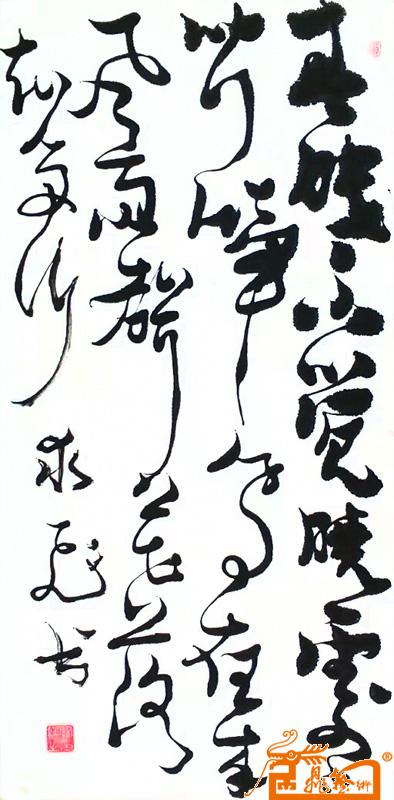 春眠不觉晓處々
闻啼鸟夜来
风雨聲花落
知多少
永彪书